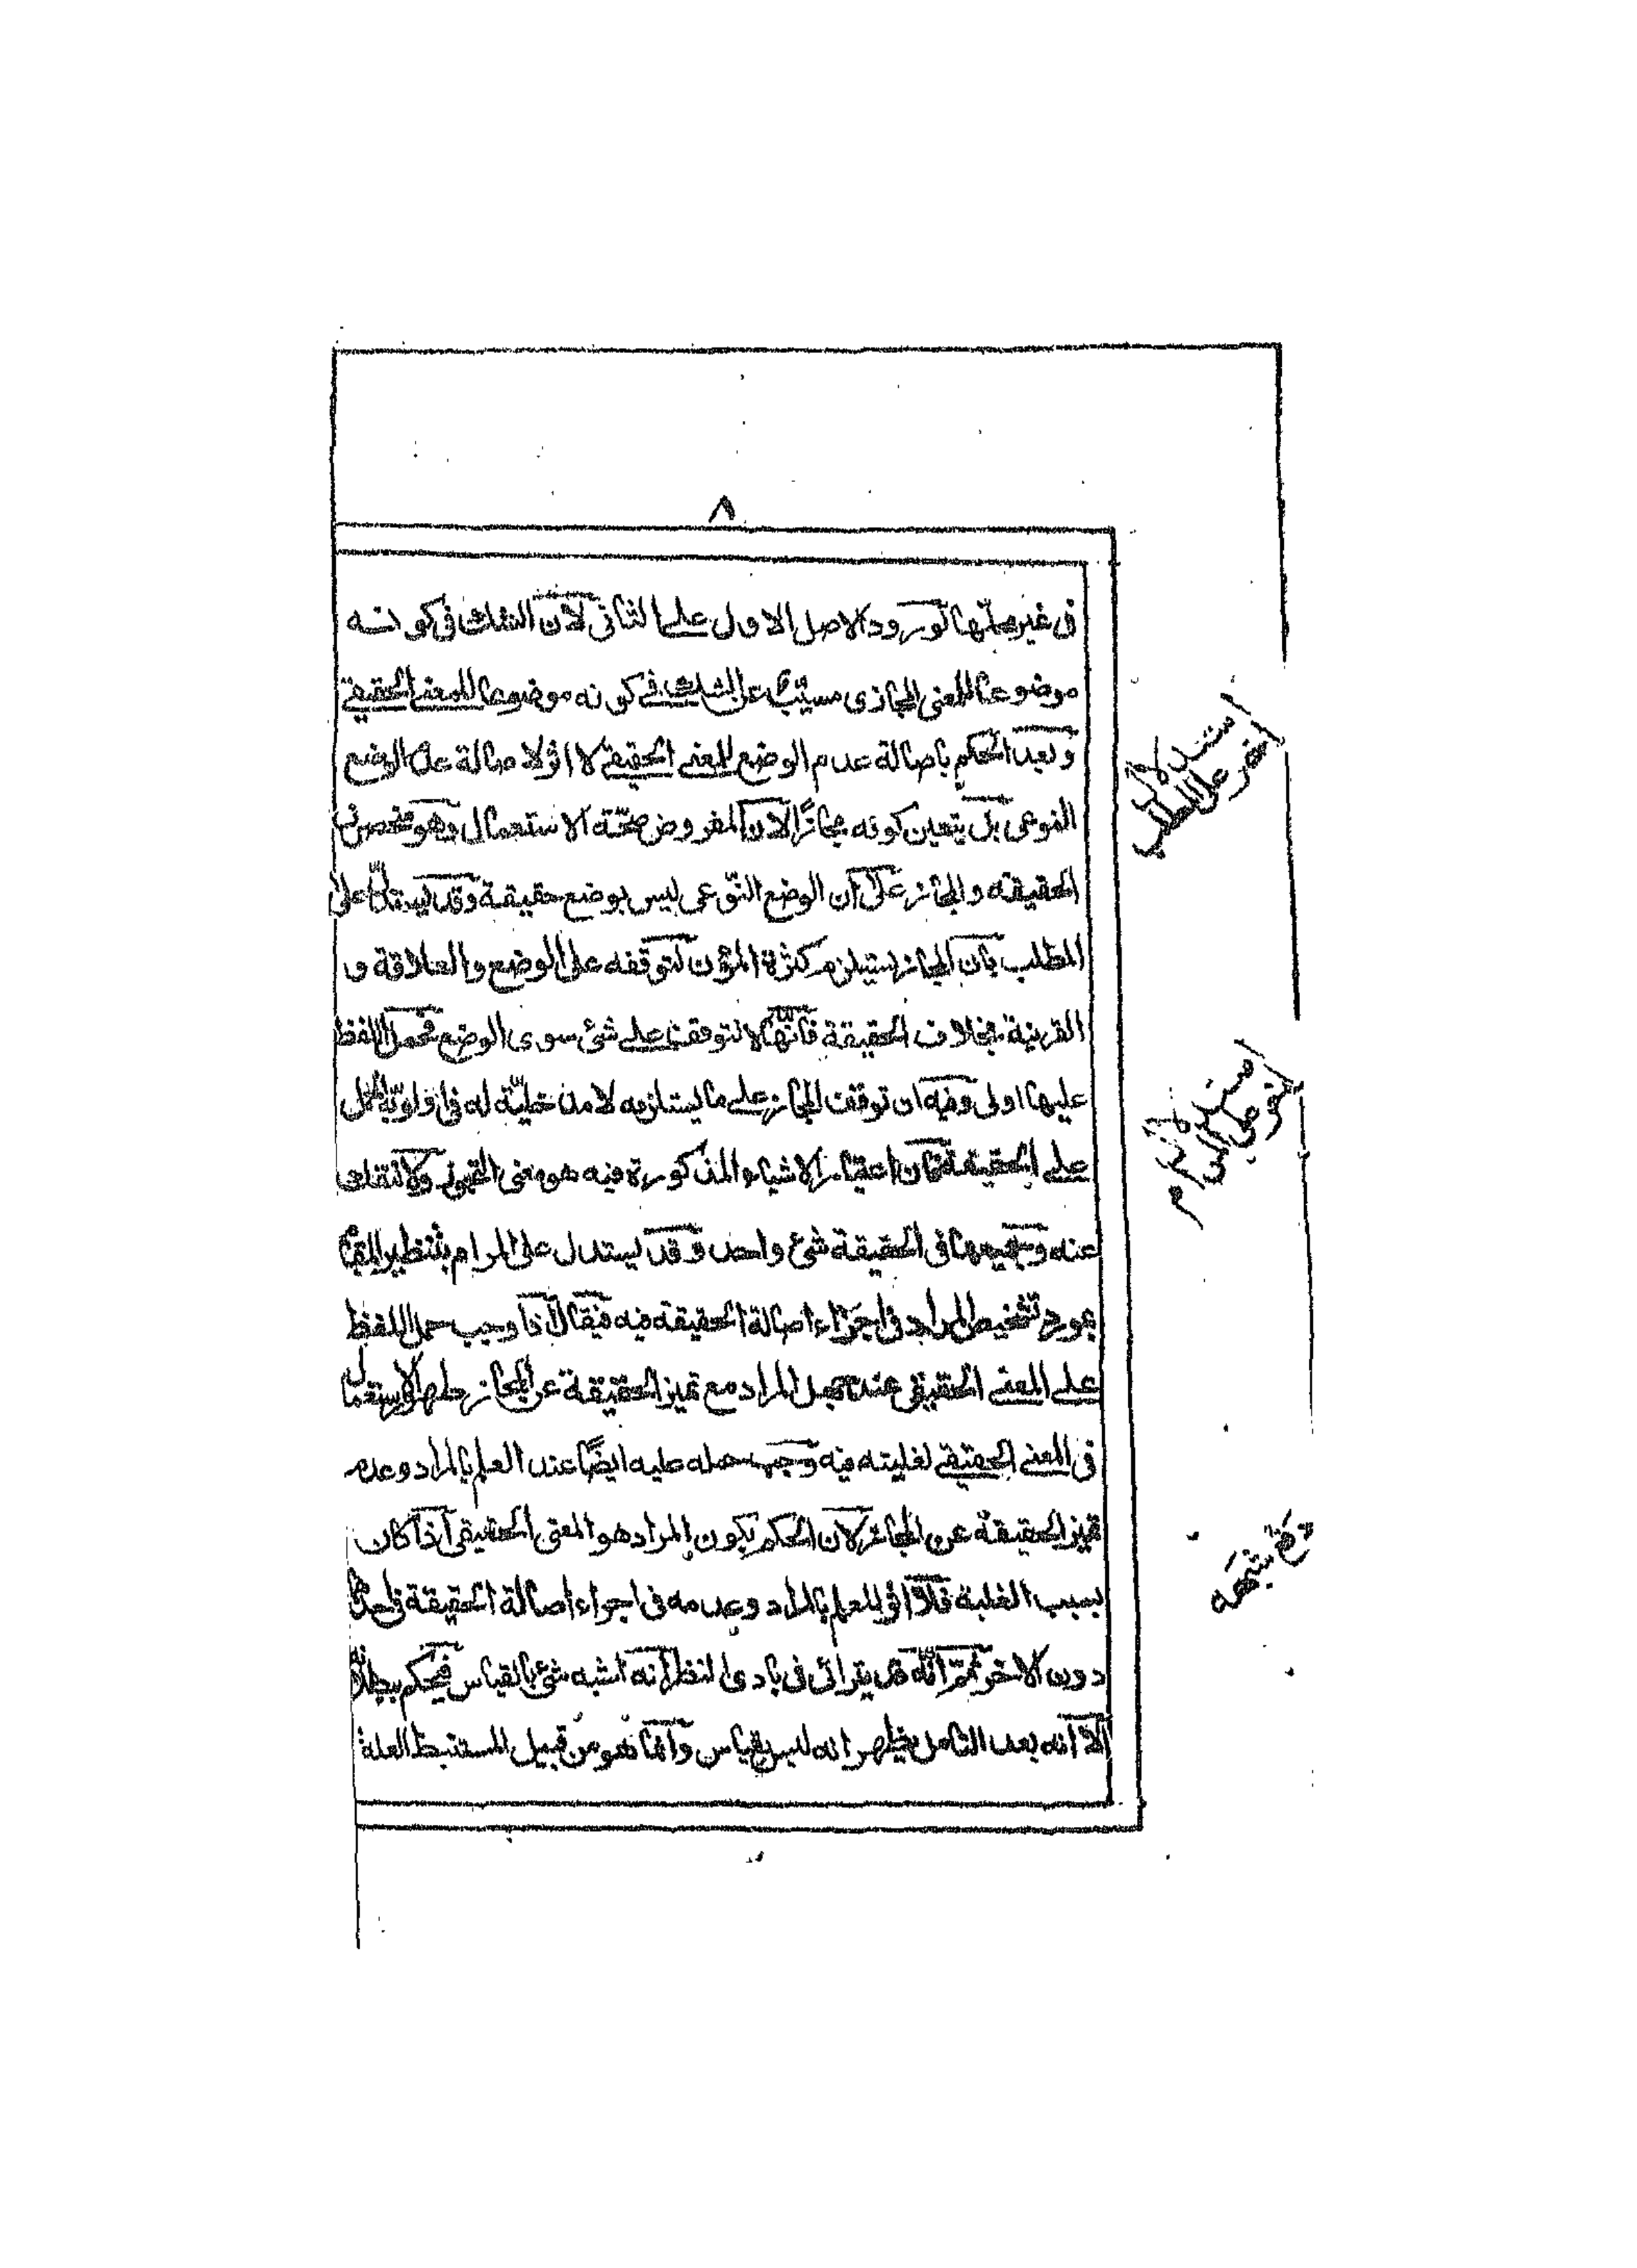 ٨
فى غير محلّها لورود الاصل الاول على الثانى لان الشك فى كونه
موضوعا للمعنى المجازى مسبّب عن الشك فى كونه موضوعا للمعنى الحقيقى
وبعد الحكم باصالة عدم الوضع للمعنى الحقيقى لا اثر لاصالة عدم الوضع
النوعى بل يتعين كونه مجازًا لان المفروض صحّة الاستعمال وهو منحصر فى
الحقيقة والمجاز على ان الوضع النّوعى ليس بوضع حقيقة وقد يستدل على
المطلب بان المجاز يستلزم كثرة المؤن لتوقفه على الوضع والعلاقة و
القرنية بخلاف الحقيقة فانّها لا تتوقف على شئ سوى الوضع فحمل اللفظ
عليها اولى وفيه ان توقف المجاز على ما يستلزمه لا مدخليّة له فى اولويّة الحمل
على الحقيقة فان اعتبار الاشياء المذكورة فيه هو معنى التجوز ولا انتقاص
عنه وجميعها فى الحقيقة شئ واحد وقد يستدل على المرام بتنظير المقام
بمورد تشخيص المراد فى اجراء اصالة الحقيقة فيه فيقال اذا وجب حمل اللفظ
على المعنى الحقيقى عند جهل المراد مع تميز الحقيقة عن المجاز لظهور الاستعمال
فى المعنى الحقيقى لغلبته فيه وجب حمله عليه ايضًا عند العلم بالمراد وعدم
تميز الحقيقة عن المجاز لان الحكم بكون المراد هو المعنى الحقيقى اذا كان
بسبب الغلبة فلا اثر للعلم بالمراد وعدمه فى اجراء اصالة الحقيقة فى احدهما
دون الاخر ثمّ انّه قد يترائى فى بادى النظر انه اشبه شئ بالقياس فيحكم ببطلانه
الا انه بعد التامل يظهر انه ليس بقياس وانما هو من قبيل المستنبط العلة
استدلال
اخر على المطلب
استدلال
اخر على المرام
دفع شبهه